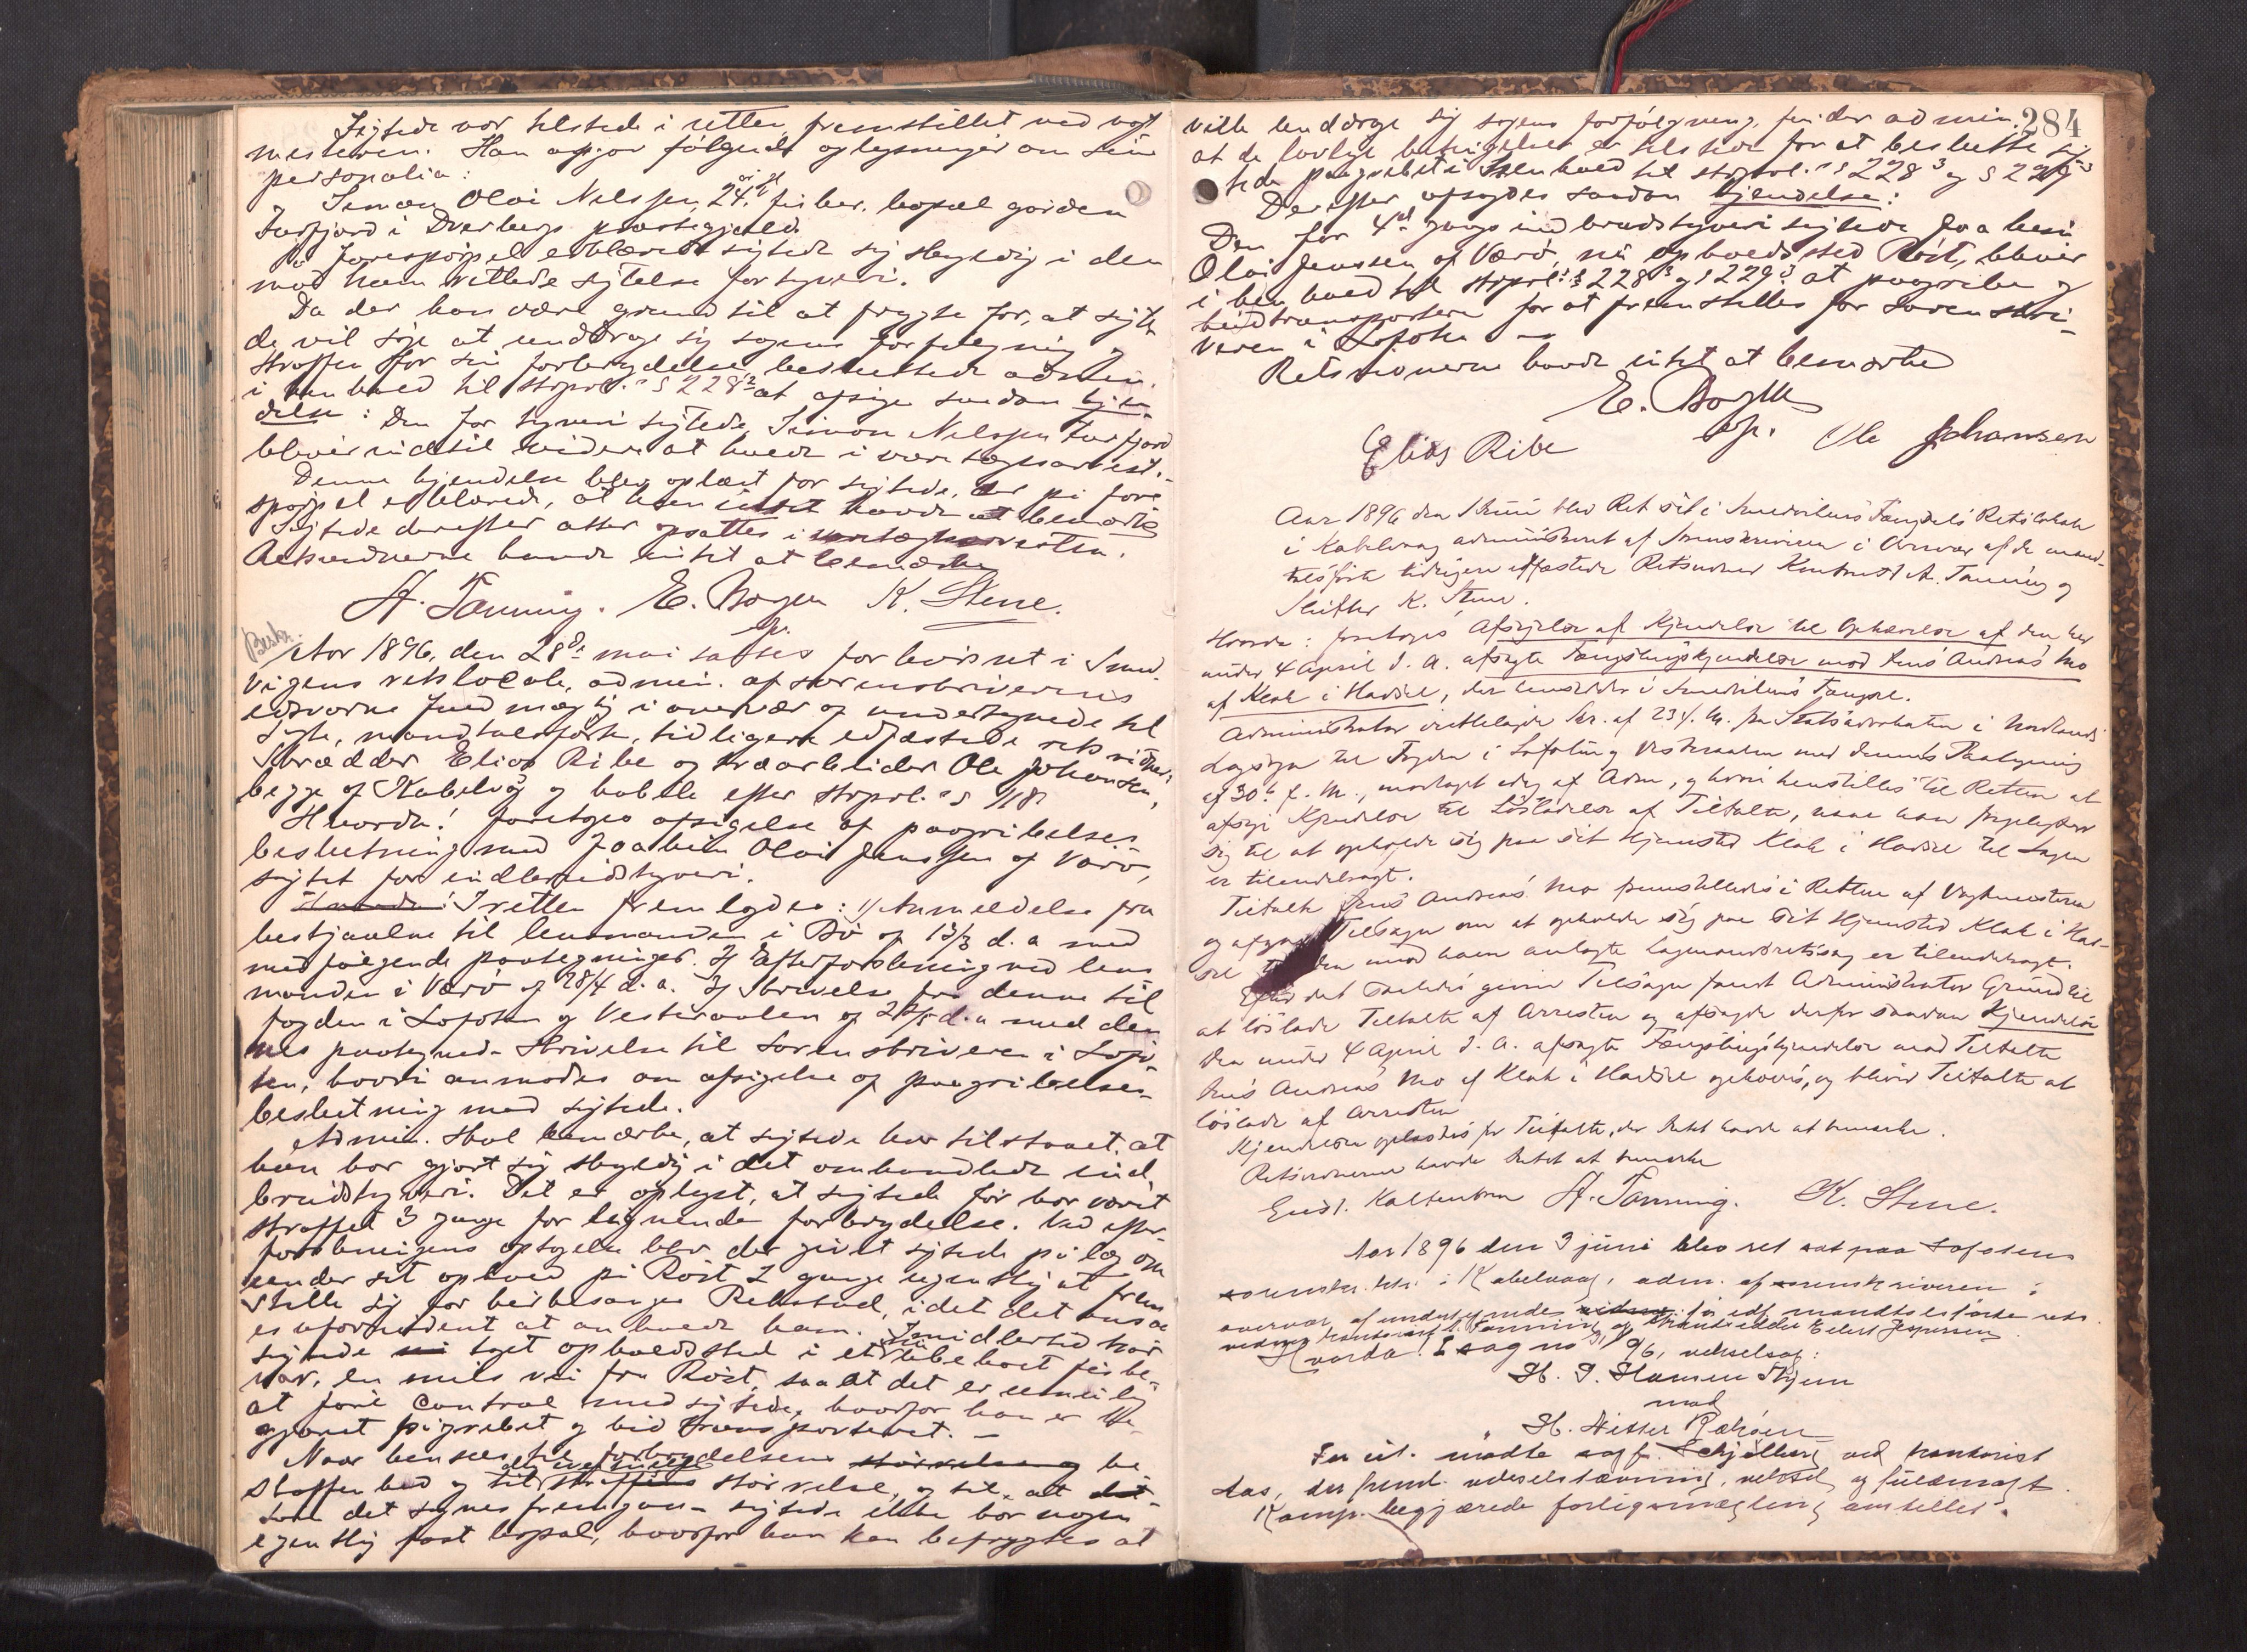 Sigtede var tilstede i retten fremstillet ved vagt
mesteren. Han afgav følgende oplysninger om sine
personalia:
Simon Olai Nilssen, 24 år gl. fisker, bopæl gaarden
Forfjord i Dverbergs præstegjæld.
På forespørgsel erklærede sigtede sig skyldig i den
mod ham rettede sigtelse for tyveri.
Da der kan være grund til at frygte for, at sigte
de vil søge at unddrage sig sagens forfølgning og
straffen for sin forbrydelse besluttede admin.
i henhold til strprl. § 228² at afsige saadan kjen
delse: Den for tyveri sigtede, Simon Nilssen Forfjord
bliver indtil videre at holde i varetægtsarrest.
Denne kjendelse blev oplæst for sigtede, der på fore
spørgsel erklærede, at han intet havde at bemærke
Sigtede derefter atter opsattes i varetægtsarresten.
Retsvidnerne havde intet at bemærke
A. Tanning. E. Bogen K. Stene.
fu.
Beskr.
Aar 1896, den 28de mai sattes forhørsret i Smed
vigens retslocale, admin. af sorenskriverens
edsvorne fuldmægtig i overvær af undertegnede til
dels, mandtalsførte, tidligere edfæstede retsvidner,
Skrædder Elias Ribe og træarbeider Ole Johansen,
begge af Kabelvåg og kaldte efter strprl. § 118
Hvorda! foretoges afsigelse af paagribelses
beslutning mod Joakim Olai Jenssen af Værø,
sigtet for indbrudstyveri.
Hvorda! I retten fremlagdes: 1/ Anmeldelse fra
bestjaalne til lensmanden i Bø af 13/3 d.a med
medfølgende paategninger. 2/ Efterforskning ved lens
manden i Værø af 28/4 d.a. 3/ Skrivelse fra denne til
fogden i Lofoten og Vesteraalen af 2/5 d.a med den
nes paategned. Skrivelse til Sorenskriveren i Lofo
ten, hvori anmodes om afsigelse af paagribelses
beslutning mod sigtede.
Admin. skal bemærke, at sigtede har tilstaaet, at
han har gjort sig skyldig i det omhandlede ind
brudstyveri. Det er oplyst, at sigtede før har været
straffet 3 gange for lignende forbrydelse. Ved efter
forskningens optagelse blev der givet sigtede pålæg om
under sit ophold på Røst 2 gange ugentlig at frem
stille sig for kirkesanger Rekstad, idet det ansaa
es ufornødent at anholde ham. Imidlertid har
sigtede taget opholdssted i et lidet ubeboet fiske
vær, en mils vei fra Røst, saa at det er umulig
at føre Control med sigtede, hvorfor han er be
gjæret pågrebet og hid transporteret. —
Naar hensees til forbrydelsens be
skaffenhed og til straffens størrelse, og til, at
som det synes fremgaa — sigtede ikke har nogen
egentlig fast bopæl, hvorfor han kan befrygtes at
284
ville unddrage sig sagens forfølgning, finder admin.
at de lovlige betingelser er tilstede for at beslutte sig
tede paagrebet i henhold til strprl. § 228³ og § 229³
Derefter afsagdes saadan kjendelse:
Den for 4de gangs indbrudstyveri sigtede Joakim
Olai Jenssen af Værø, nu opholdssted Røst, bliver
i henhold til strprl. § 228³ og § 229³ at paagribe og
hidtransportere for at fremstilles for Sorenskri
veren i Lofoten —
Retsvidnerne havde intet at bemærke
E. Bogen
fu.
Elias Ribe Ole Johansen
Aar 1896 den 1 Juni blev Ret sat i Smedvikens Fængsels Retslokale
i Kabelvaag administreret af Sorenskriveren i Overvær af de mand-
talsførte tidligere edfæstede Retsvidner Kontorist A. Tanning og
Skifter K. Stene.
Hvorda: foretoges Afsigelse af Kjendelse til Ophævelse af den her
under 4 April d. A. afsagte Fængslingskjendelse mod Jens Andreas Mo
af Klak i Hadsel, der hensidder i Smedvikens Fængsel.
Administrator irettelagde Skr. af 23 f. M. fra Statsadvokaten i Nordlands
Lagsogn til Fogden i Lofoten og Vesteraalen med dennes Paategning
af 30. f. M., modtaget idag af Adm., og hvori henstilles til Retten at
afsige Kjendelse til Løsladelse af Tiltalte, naar han forpligter
sig til at opholde sig paa sit Hjemsted Klak i Hadsel til Sagen
er tilendebragt.
Tiltalte Jens Andreas Mo fremstilledes i Retten af Vagtmesteren
og afgav Tilsagn om at opholde sig paa sit Hjemsted Klak i Had-
sel til den mod ham anlagte Lagmandsretssag er tilendebragt.
Efter det saaledes givne Tilsagn fandt Administrator Grund til
at løslade Tiltalte af Arresten og afsagde derfor saadan Kjendelse
Den under 4 April d. A. afsagte Fængslingskjendelse mod Tiltalte
Jens Andreas Mo af Klak i Hadsel ophæves, og bliver Tiltalte at
løslade af Arresten
Kjendelsen oplæstes for Tiltalte, der Intet havde at bemærke.
Retsvidnerne havde Intet at bemærke
Gudt. Kaltenborn A. Tanning. K. Stene.
Aar 1896 den 3 juni blev ret sat paa Lofotens
sorenskr. ktr. i Kabelvaag, adm. af sorenskriveren i
overvær af undertegnede to edf. mandtalsførte rets
vidner kontorist A. Tanning og Eilert Jespersen
Hvorda! I sag no 9/96, vekselsag:
H. P. Hansen Skjem
mod
H. Ritter Reksen
For cit. mødte sagf. Schjølberg ved kontorist
Aas, der freml. vekselstævning, veksel og fuldmagt.
Komp. begjærede forligsmægling anstillet.